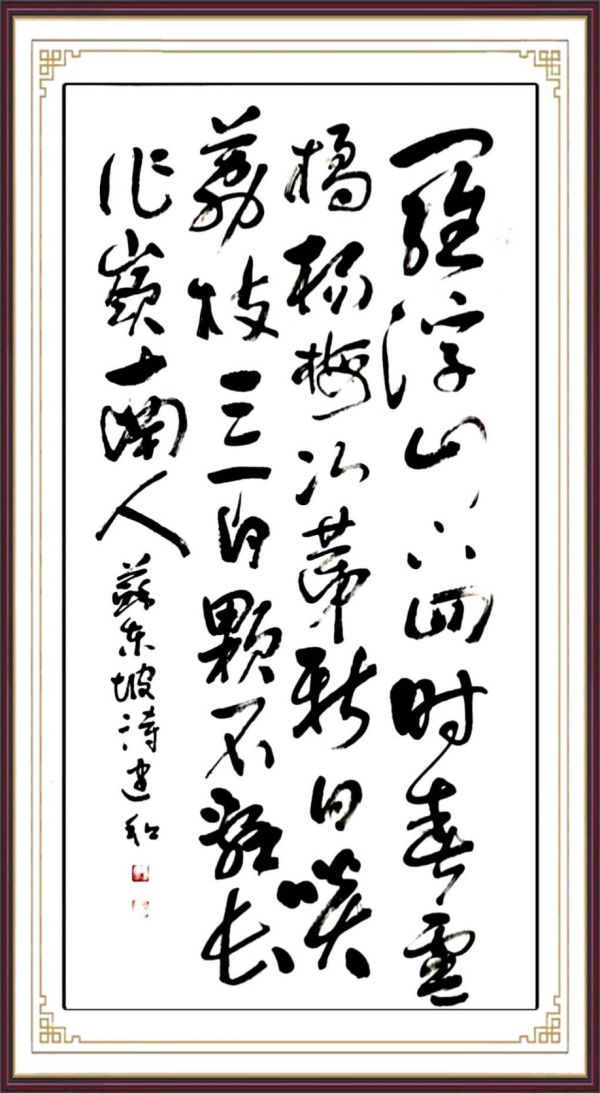 羅浮山下四时春盧
橘杨梅次第新日啖
荔枝三百颗不辞长
作嶺南人
蘇东坡诗建和